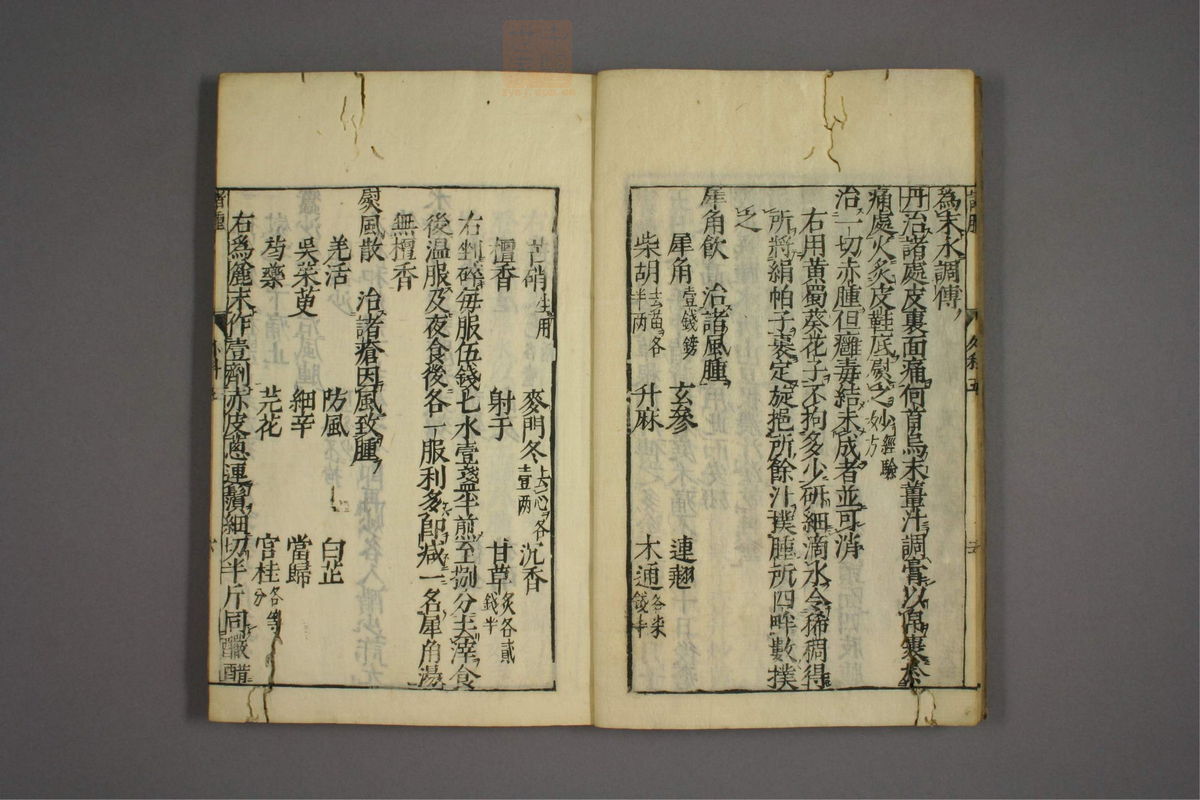 爲末水調傅
丹治諸處皮裏面痛何首烏末薑汁調膏以帛裹
痛處火炙皮鞋底慰之妙經驗方
治一切赤腫但癰毒結未成者並可消
右用黃蜀葵花子不拘多少研細滴水令稀稠得
所將絹帕子裹定旋挹所餘汁撲腫所四畔數撲
之
犀角飲 治諸風腫
犀角壹錢鎊 玄參 連翹
柴胡去苗各半两 升麻 木通各柒錢半
芒硝生用 麥門冬去心各壹两 沉香
檀香 射于 甘草炙各貳錢半
右剉碎每服伍錢七水壹盞半煎至捌分去滓食
後温服及夜食後各一服利多卽减一名犀角湯
無檀香
熨風散 治諸瘡因風致腫
羌活 防風 白芷
吳茱萸 細辛 當歸
芍藥 芫花 官桂各等分
右爲麄末作壹劑赤皮葱連鬚細切半斤同釅醋